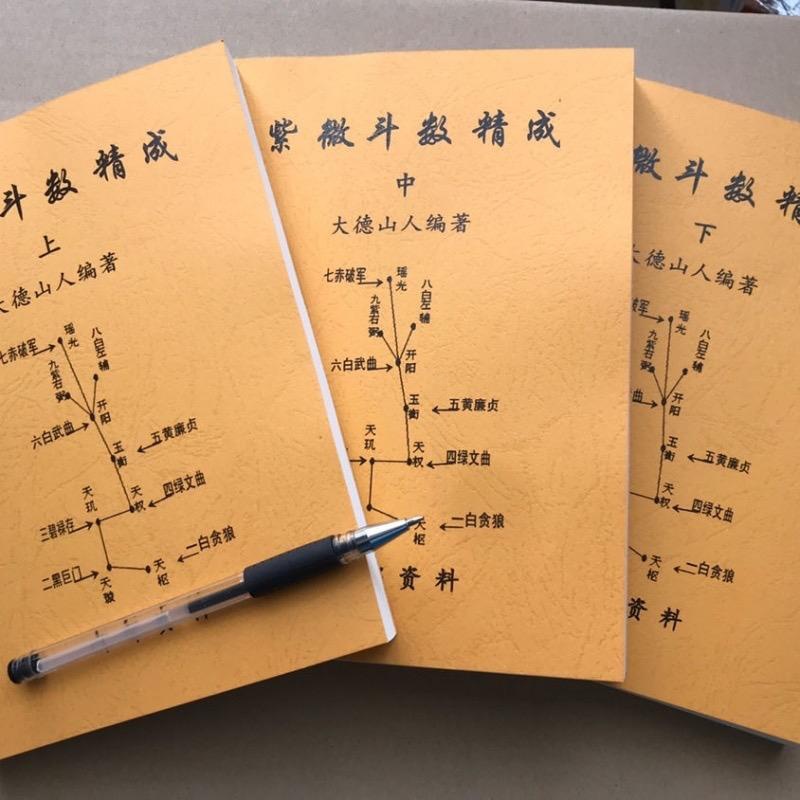 斗数精成
上
大德山人编著
七赤破军
瑶光
八白左辅
九紫右弼
开阳
六白武曲
玉衡
五黄廉贞
天玑
天权
四绿文曲
三碧禄存
二黑巨门
天璇
天枢
一白贪狼
紫微斗数精成
中
大德山人编著
七赤破军
瑶光
八白左辅
九紫右弼
开阳
六白武曲
玉衡
五黄廉贞
天玑
天权
四绿文曲
天枢
一白贪狼
资料
微斗数精
下
大德山人编著
八白左辅
九紫右弼
开阳
曲
玉衡
五黄廉贞
天权
四绿文曲
天枢
一白贪狼
资料